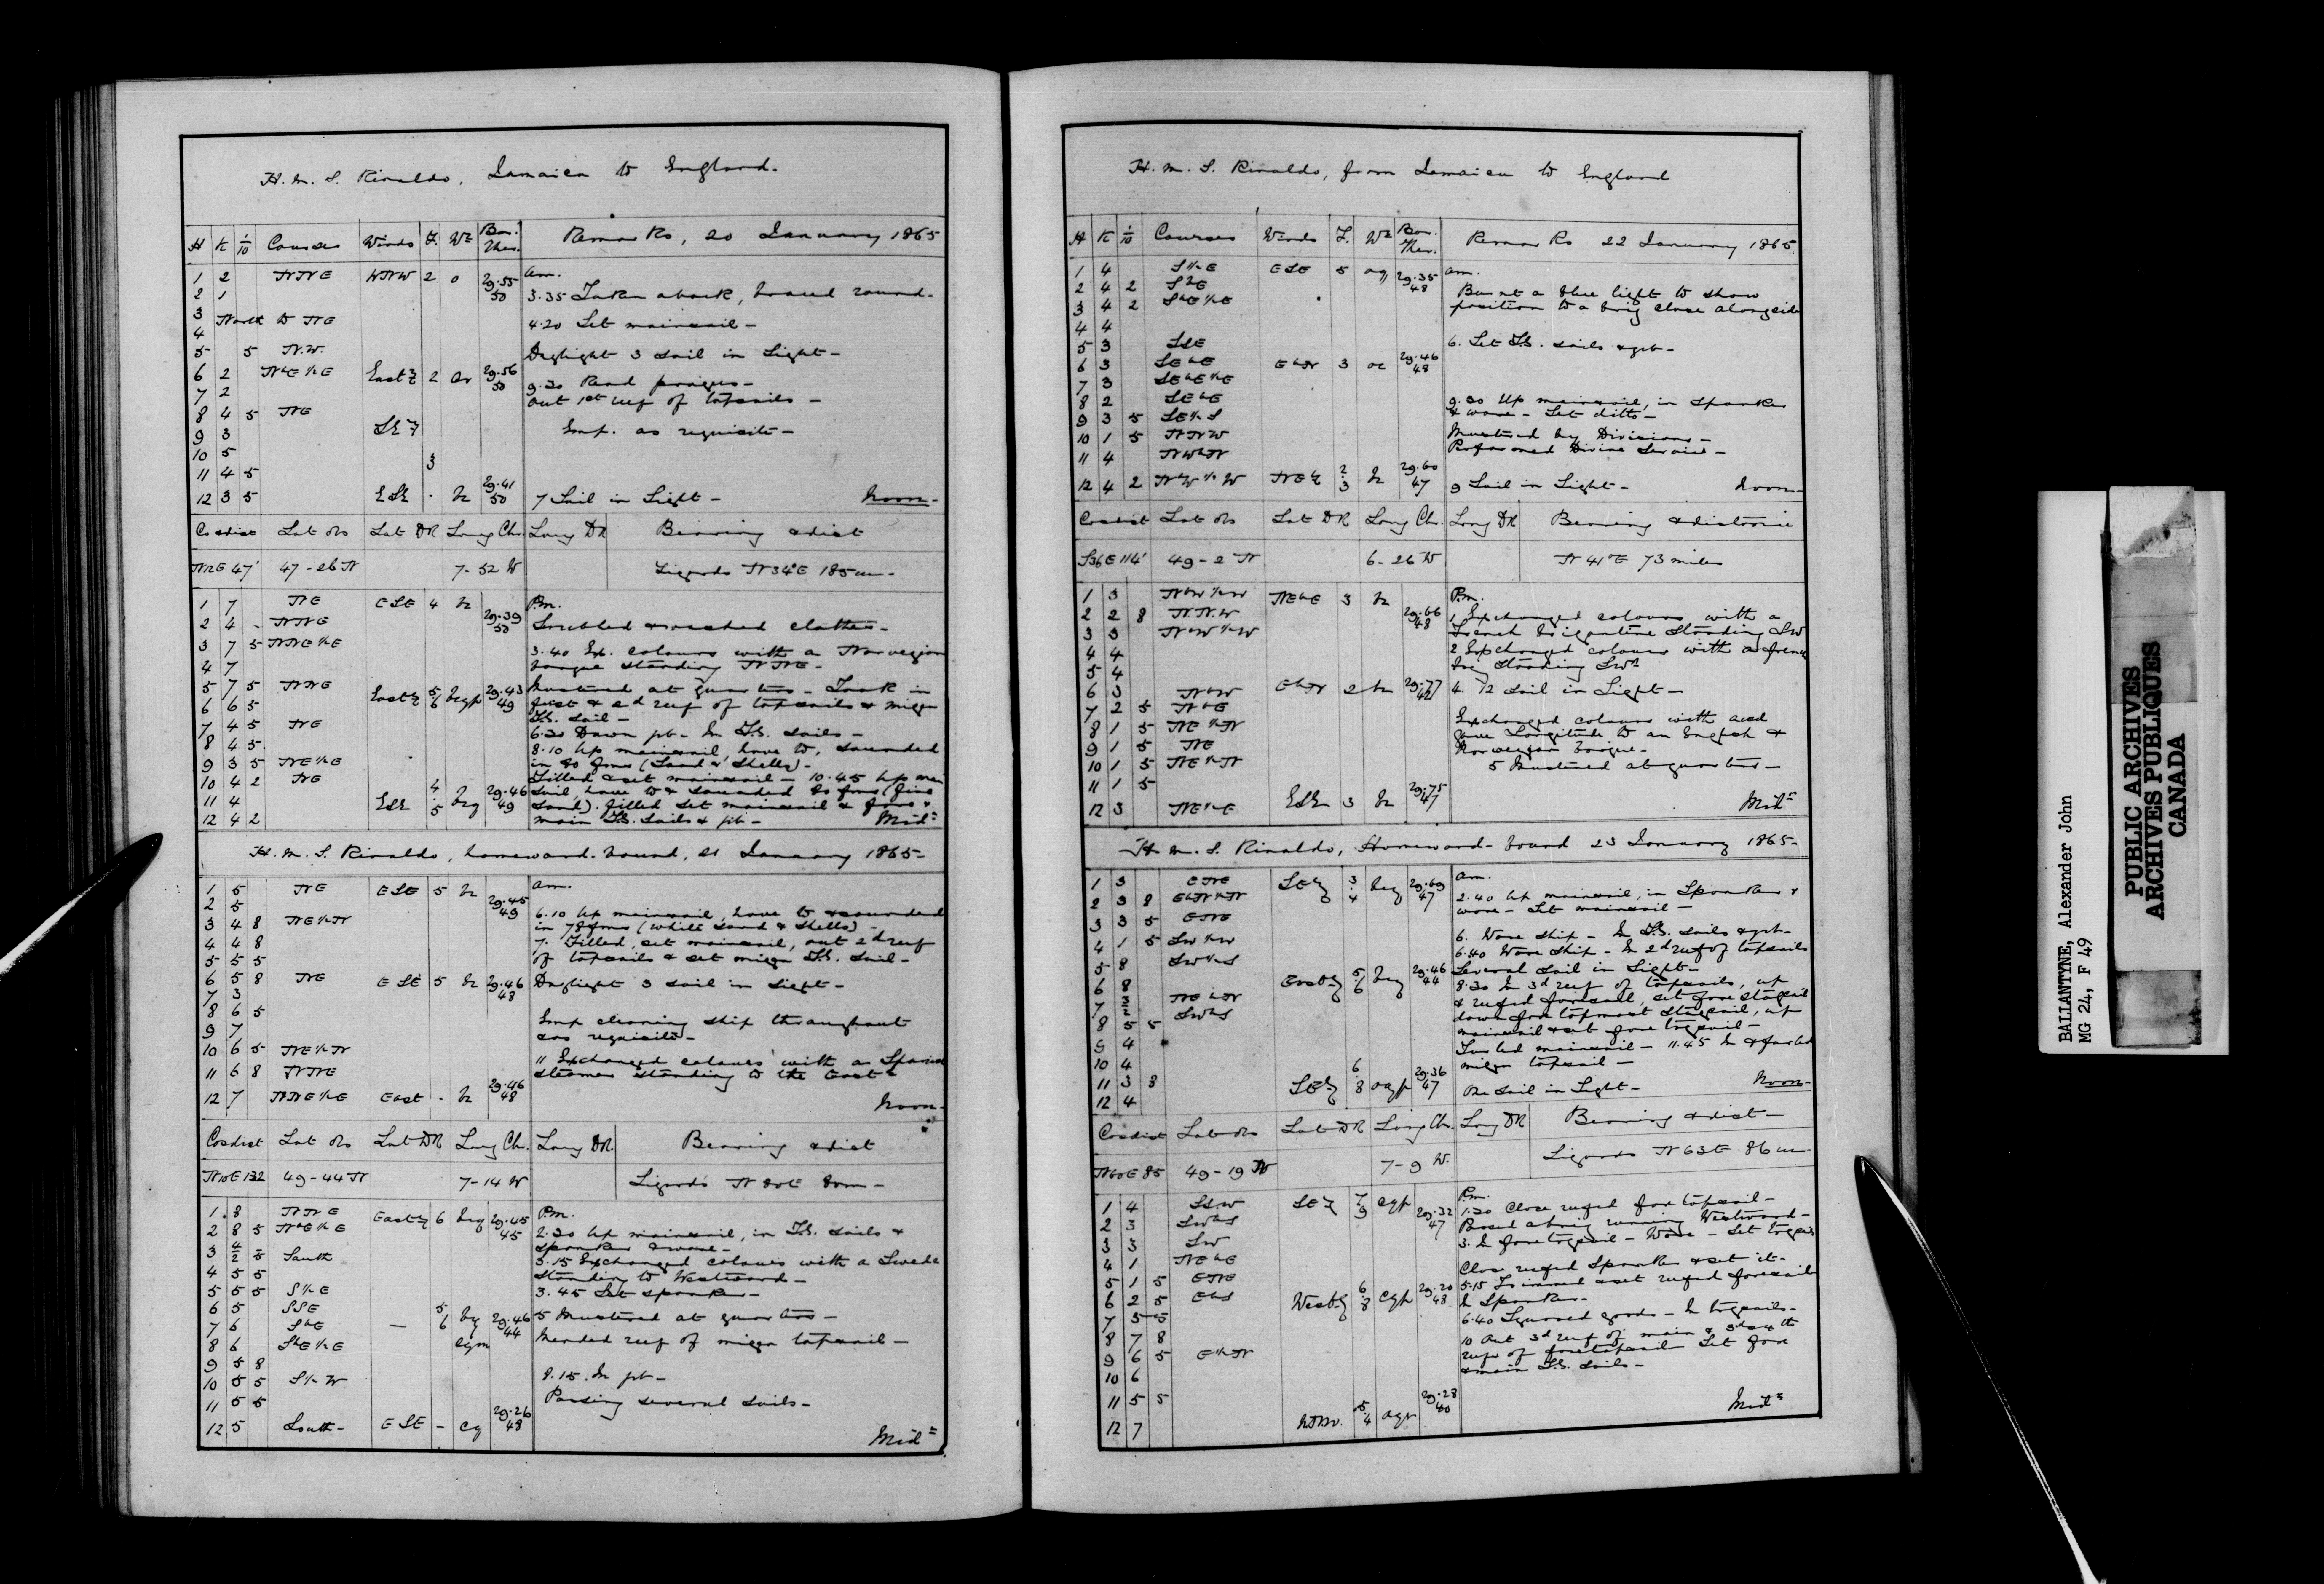 H.M.S. Rinaldo, Jamaica to England.
H K 1/10 Courses Winds F. Wr Bar. Ther. Remarks, 20 January 1865
am.
1 2 NNE WNW 2 o 29.55 50
2 1 3.35 Taken aback, braced round.
3 North to NE
4 4.20 Set mainsail -
5 5 N.W. Daylight 3 sail in Sight -
6 2 NbE½E East 2 29.56 50
7 2 9.30 Read prayers -
out 1st reef of topsails -
8 4 5 NE
9 3 SE Emp. as requisite -
10 5
11 4 5 3
12 3 5 ESE . bc 29.41 50 7 Sail in Sight - Noon -
Co & dist Lat obs Lat DR Long Ch. Long DR Bearing & dist
N12E 47' 47-26 N 7-52 W Lizards N34°E 185m -
Pm.
1 7 NE ESE 4 bc 29.39 50
2 4 - NNE Scrubbed & washed clothes -
3 7 5 NNE½E 3.40 Ex. colours with a Norwegian
4 7 barque standing NNE -
5 7 5 NNE East 5/6 bcqp 29.43 49 Mustered at quarters - Took in
6 6 5 first & 2d reef of topsails & mizen
T.G. Sail -
7 4 5 NE 6.30 Down jib - In T.G. Sails -
8 4 5 8.10 Up mainsail, hove to, sounded
9 3 5 NE½E in 80 fms (Sand & Shells) -
10 4 2 NE Filled & set mainsail - 10.45 Up main
11 4 ESE 4/5 bcq 29.46 49 sail, hove to & sounded 80 fms (fine
Sand). filled set mainsail & fore &
12 4 2 main T.G. Sails & jib - Midt
H.M.S. Rinaldo, homeward-bound, 21 January 1865 -
am.
1 5 NE ESE 5 bc 29.45 49
2 5 6.10 Up mainsail, hove to & sounded
3 4 8 NE½N in 78 fms (white Sand & Shells) -
4 4 8 7. Filled, set mainsail, out 2d reef
5 5 5 of topsails & set mizen T.G. Sail -
6 5 8 NE ESE 5 bc 29.46 48 Daylight 3 sail in sight -
7 3
8 6 5 Emp cleaning ship throughout
9 7 & as requisite -
10 6 5 NE½N 11 Exchanged colours with a Spanish
11 6 8 NNE steamer standing to the East -
12 7 NNE½E East . bc 29.46 48 Noon -
Co & dist Lat obs Lat DR Long Ch. Long DR. Bearing & dist
N10E 132 49-44 N 7-14 W Lizards N 80E 80m -
Pm.
1 8 NNE East 6 bcq 29.45 45
2 8 5 NbE½E 2.30 Up mainsail, in T.G. Sails &
spanker & wore -
3 4/2 5 South 3.15 Exchanged colours with a Swede
4 5 5 standing to Westward -
5 5 5 S½E 3.45 Set spanker -
6 5 SSE 5/6 bcq 29.46 44 5 Mustered at quarters -
7 6 SbE - cqm Mended reef of mizen topsail -
8 6 SbE½E
9 5 8
10 5 5 S½W 8.15. In jib -
11 5 5 Passing several sails -
12 5 South - ESE - cq 29.26 48 Midt
H.M.S. Rinaldo, from Jamaica to England
H K 1/10 Courses Winds F. Wr Bar. Ther. Remarks 22 January 1865
am.
1 4 S½E ESE 5 oq 29.35 48
2 4 2 SbE Burnt a blue light to show
3 4 2 SbE½E position to a brig close alongside
4 4
5 3 SSE 6. Set T.G. sails & jib -
6 3 SEbE EbN 3 oc 29.46 48
7 3 SEbE½E
8 2 SEbE 9.30 Up mainsail, in Spanker
9 3 5 SE½S & wore - Set ditto -
10 1 5 NNW Mustered by Divisions -
11 4 NWbN Performed Divine Service -
12 4 2 NbW½W NE 2/3 bc 29.60 47 9 Sail in Sight - Noon -
Co & dist Lat obs Lat DR Long Ch. Long DR Bearing & distance
S36E 114' 49-2 N 6-26 W N 41°E 73 miles
Pm.
1 3 NbW½W NEbE 3 bc
2 2 8 N.N.W 29.66 48 1 Exchanged colours with a
3 3 NbW½W French brigantine standing SW
4 4 2 Exchanged colours with a french
5 4 brig standing SWd
6 3 NbW EbN 2 bc 29.77 42 4. 12 sail in Sight -
7 2 5 NbE
8 1 5 NE½N Exchanged colours with and
9 1 5 NE gave Longitude to an English &
Norwegian barque -
10 1 5 NE½N 5 Mustered at quarters -
11 1 5
12 3 NE½E ESE 3 bc 29.75 47 Midt
H.M.S. Rinaldo, Homeward-bound 23 January 1865 -
am.
1 3 ENE SE 3/4 bcq 29.69 47
2 3 8 EbN½N 2.40 Up mainsail, in Spanker &
3 3 5 ENE wore - Set mainsail -
4 1 5 SW½W 6. Wore ship - In T.G. sails & jib -
5 8 SW½S 6.40 Wore Ship - In 2d reef of topsails
6 8 East 5/6 bcq 29.46 44 Several sail in Sight -
7 3/2 NEbN 8.30 In 3d reef of topsails, up
& reefed foresail, set fore staysail
8 5 5 SWbS down fore topmost staysail, up
9 4 mainsail & set fore trysail -
10 4 Furled mainsail - 11.45 In & furled
11 3 8 SE 6/8 oqp 29.36 47 mizen topsail -
12 4 One sail in Sight - Noon -
Co & dist Lat obs Lat DR Long Ch. Long DR Bearing & dist -
N60E 85 49-19 N 7-9 W. Lizards N 63E 86m -
Pm.
1 4 SSW SE 7/9 cqp 29.32 47 1.30 Close reefed fore topsail -
2 3 SWbS Passed a brig running Westward -
3 3 SW 3. In fore trysail - Wore - Set trysail
4 1 NEbE Close reefed Spanker & set it -
5 1 5 ENE 5.15 Trimmed & set reefed foresail
6 2 5 EbS West 6/8 cqp 29.20 48 In Spanker -
7 5 5 6.40 Squared yards - In trysails -
8 7 8 10 Out 3d reef of main & 3d & 4th
9 6 5 E½N reefs of foretopsail Set fore
10 6 & main T.G. Sails -
11 5 5 29.28 40
12 7 5/4 oqr Midt
BALLANTYNE, Alexander John
MG 24, F 49
PUBLIC ARCHIVES
ARCHIVES PUBLIQUES
CANADA